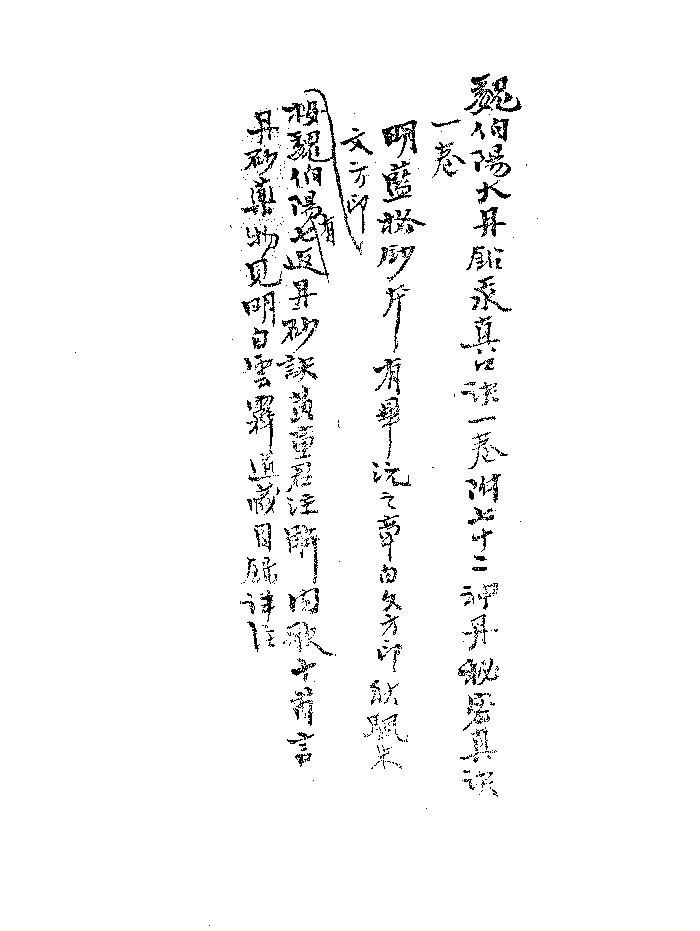 魏伯陽大丹鉛汞真口訣一卷附七十二神丹秘密真訣
一卷
明藍格鈔本有畢沅之章白文方印秋颿朱
文方印
按魏伯陽有七返丹砂訣黃童君注斷内歌十首言
丹砂藥物見明白雲霽道藏目錄詳註